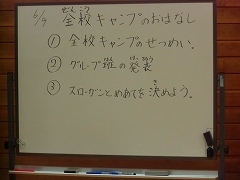 6/9 全校キャンプのおはなし
① 全校キャンプのせつめい。
② グループ班の発表
③ スローガンとめあてを決めよう。